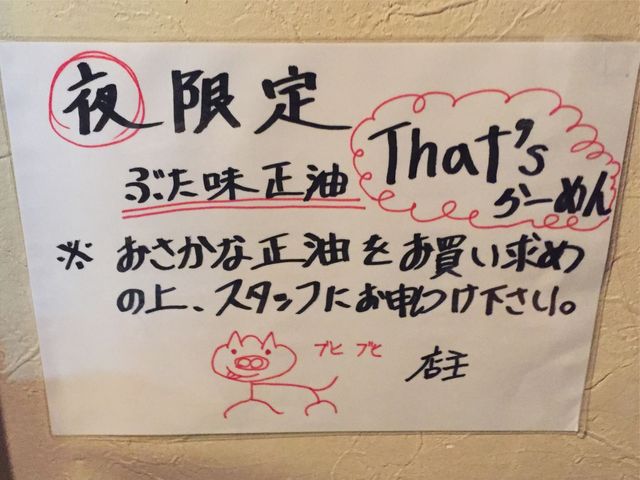 夜限定
That's
らーめん
ぶた味正油
※ おさかな正油をお買い求め
の上、スタッフにお申しつけ下さい。
ブヒ ブヒ
店主